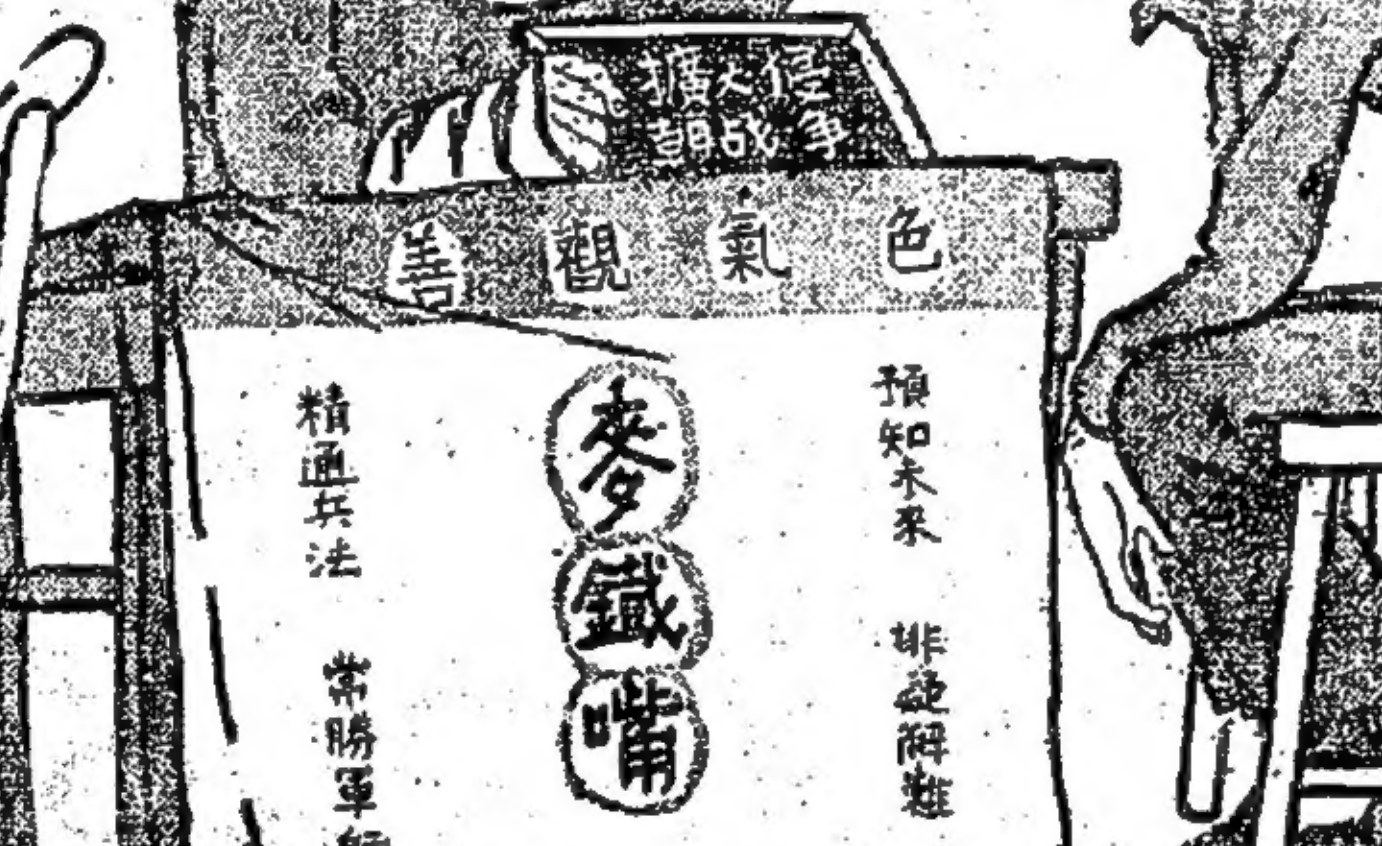 擴大侵
朝战爭
善觀氣色
預知未來 排疑解難
麥鐵嘴
精通兵法 常勝軍師